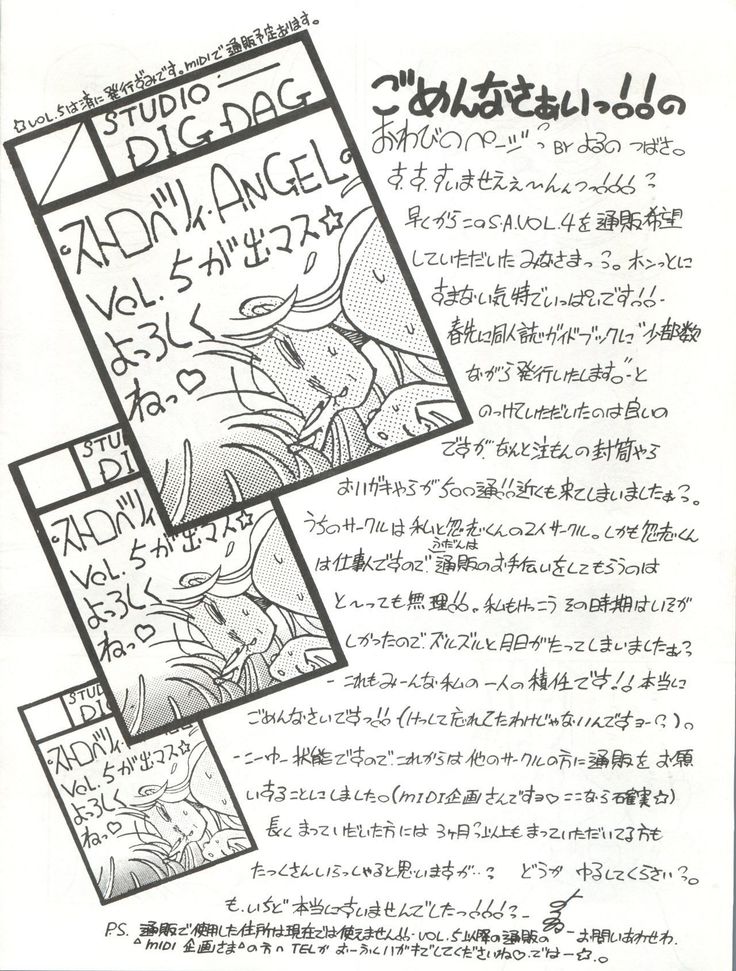 ☆VOL.5は済に発行ずみです。MIDIで通販予定おります。
STUDIO
DIG DAG
ストロベリィ・ANGEL。
VOL.5が出マス☆
よろしく
ねっ♡
STUD
DI
ストロベリィ
VOL.5が出マス☆
よろしく
ねっ♡
STUD
DIG
ストロベリィ
VOL.5が出マス☆
よろしく
ねっ♡
ごめんなさぁいっ!!の
おわびのページ? BY よるの つばさ。
す.す.すいませえぇ〜んんっっ!!!?
早くからこのS.A.VOL.4を通販希望
していただいたみなさまっ?。ホンっとに
すまない気持でいっぱいです!!-
春先に同人誌ガイドブックに"少部数
ながら発行いたします。"と
のっけていただいたのは良いの
ですが、なんと注もんの封筒やら
おハガキやらが500通!!近くも来てしまいましたぁ?。
うちのサークルは私と忽売くんの2人サークル。しかも忽売くん
は仕事人ですので、ふだんは通販のお手伝いをしてもらうのは
と〜っても無理!!。私もけっこうその時期はいそが
しかったので、ズルズルと月日がたってしまいましたぁ?
-これもみーんな私の一人の積任です!!本当に
ごめんなさいですっ!!(けっして忘れてたわけじゃないんですョー?)。
-こーゆー状能ですので、これからは他のサークルの方に通販をお願
いすることにしました。(MIDI企画さんですョ♡ここなら確実☆)
長くまっていだいた方には3ヶ月?以上もまっていただいてる方も
たっくさんいらっしゃると思いますが…? どうか ゆるしてくらさい?。
も.いちど 本当にすいませんでしたっ!!!?-
P.S. 通販で使用した住所は現在では使えません!!-VOL.5以降の通販の お問いあわせわ、
"MIDI企画さま"の方へTELかおーふくハガキでしてくださいね♡.では-☆.。